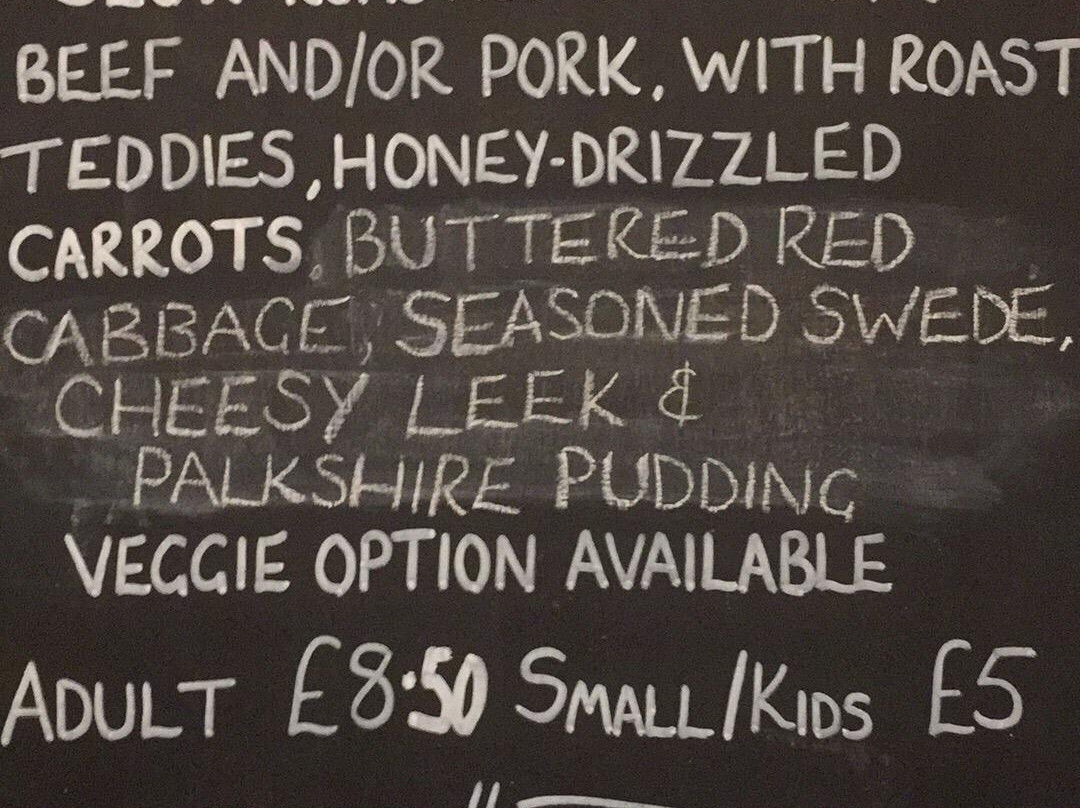 BEEF AND/OR PORK, WITH ROAST
TEDDIES, HONEY-DRIZZLED
CARROTS, BUTTERED RED
CABBAGE, SEASONED SWEDE,
CHEESY LEEK &
PALKSHIRE PUDDING
VEGGIE OPTION AVAILABLE
ADULT £8.50 SMALL/KIDS £5